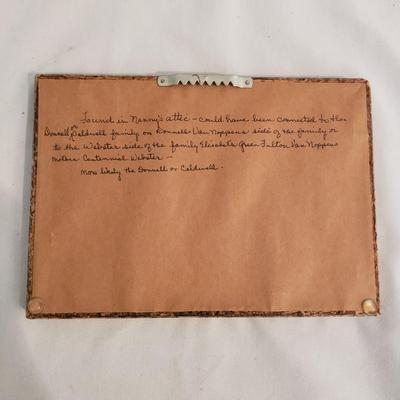 Found in Nanny's attic - could have been connected to the
Donnell or Caldwell family on Donnell Van Noppens side of the family or
to the Webster side of the family Elizabeth Green Fulton Van Noppens
mother Centennial Webster -
More likely the Donnell or Caldwell.